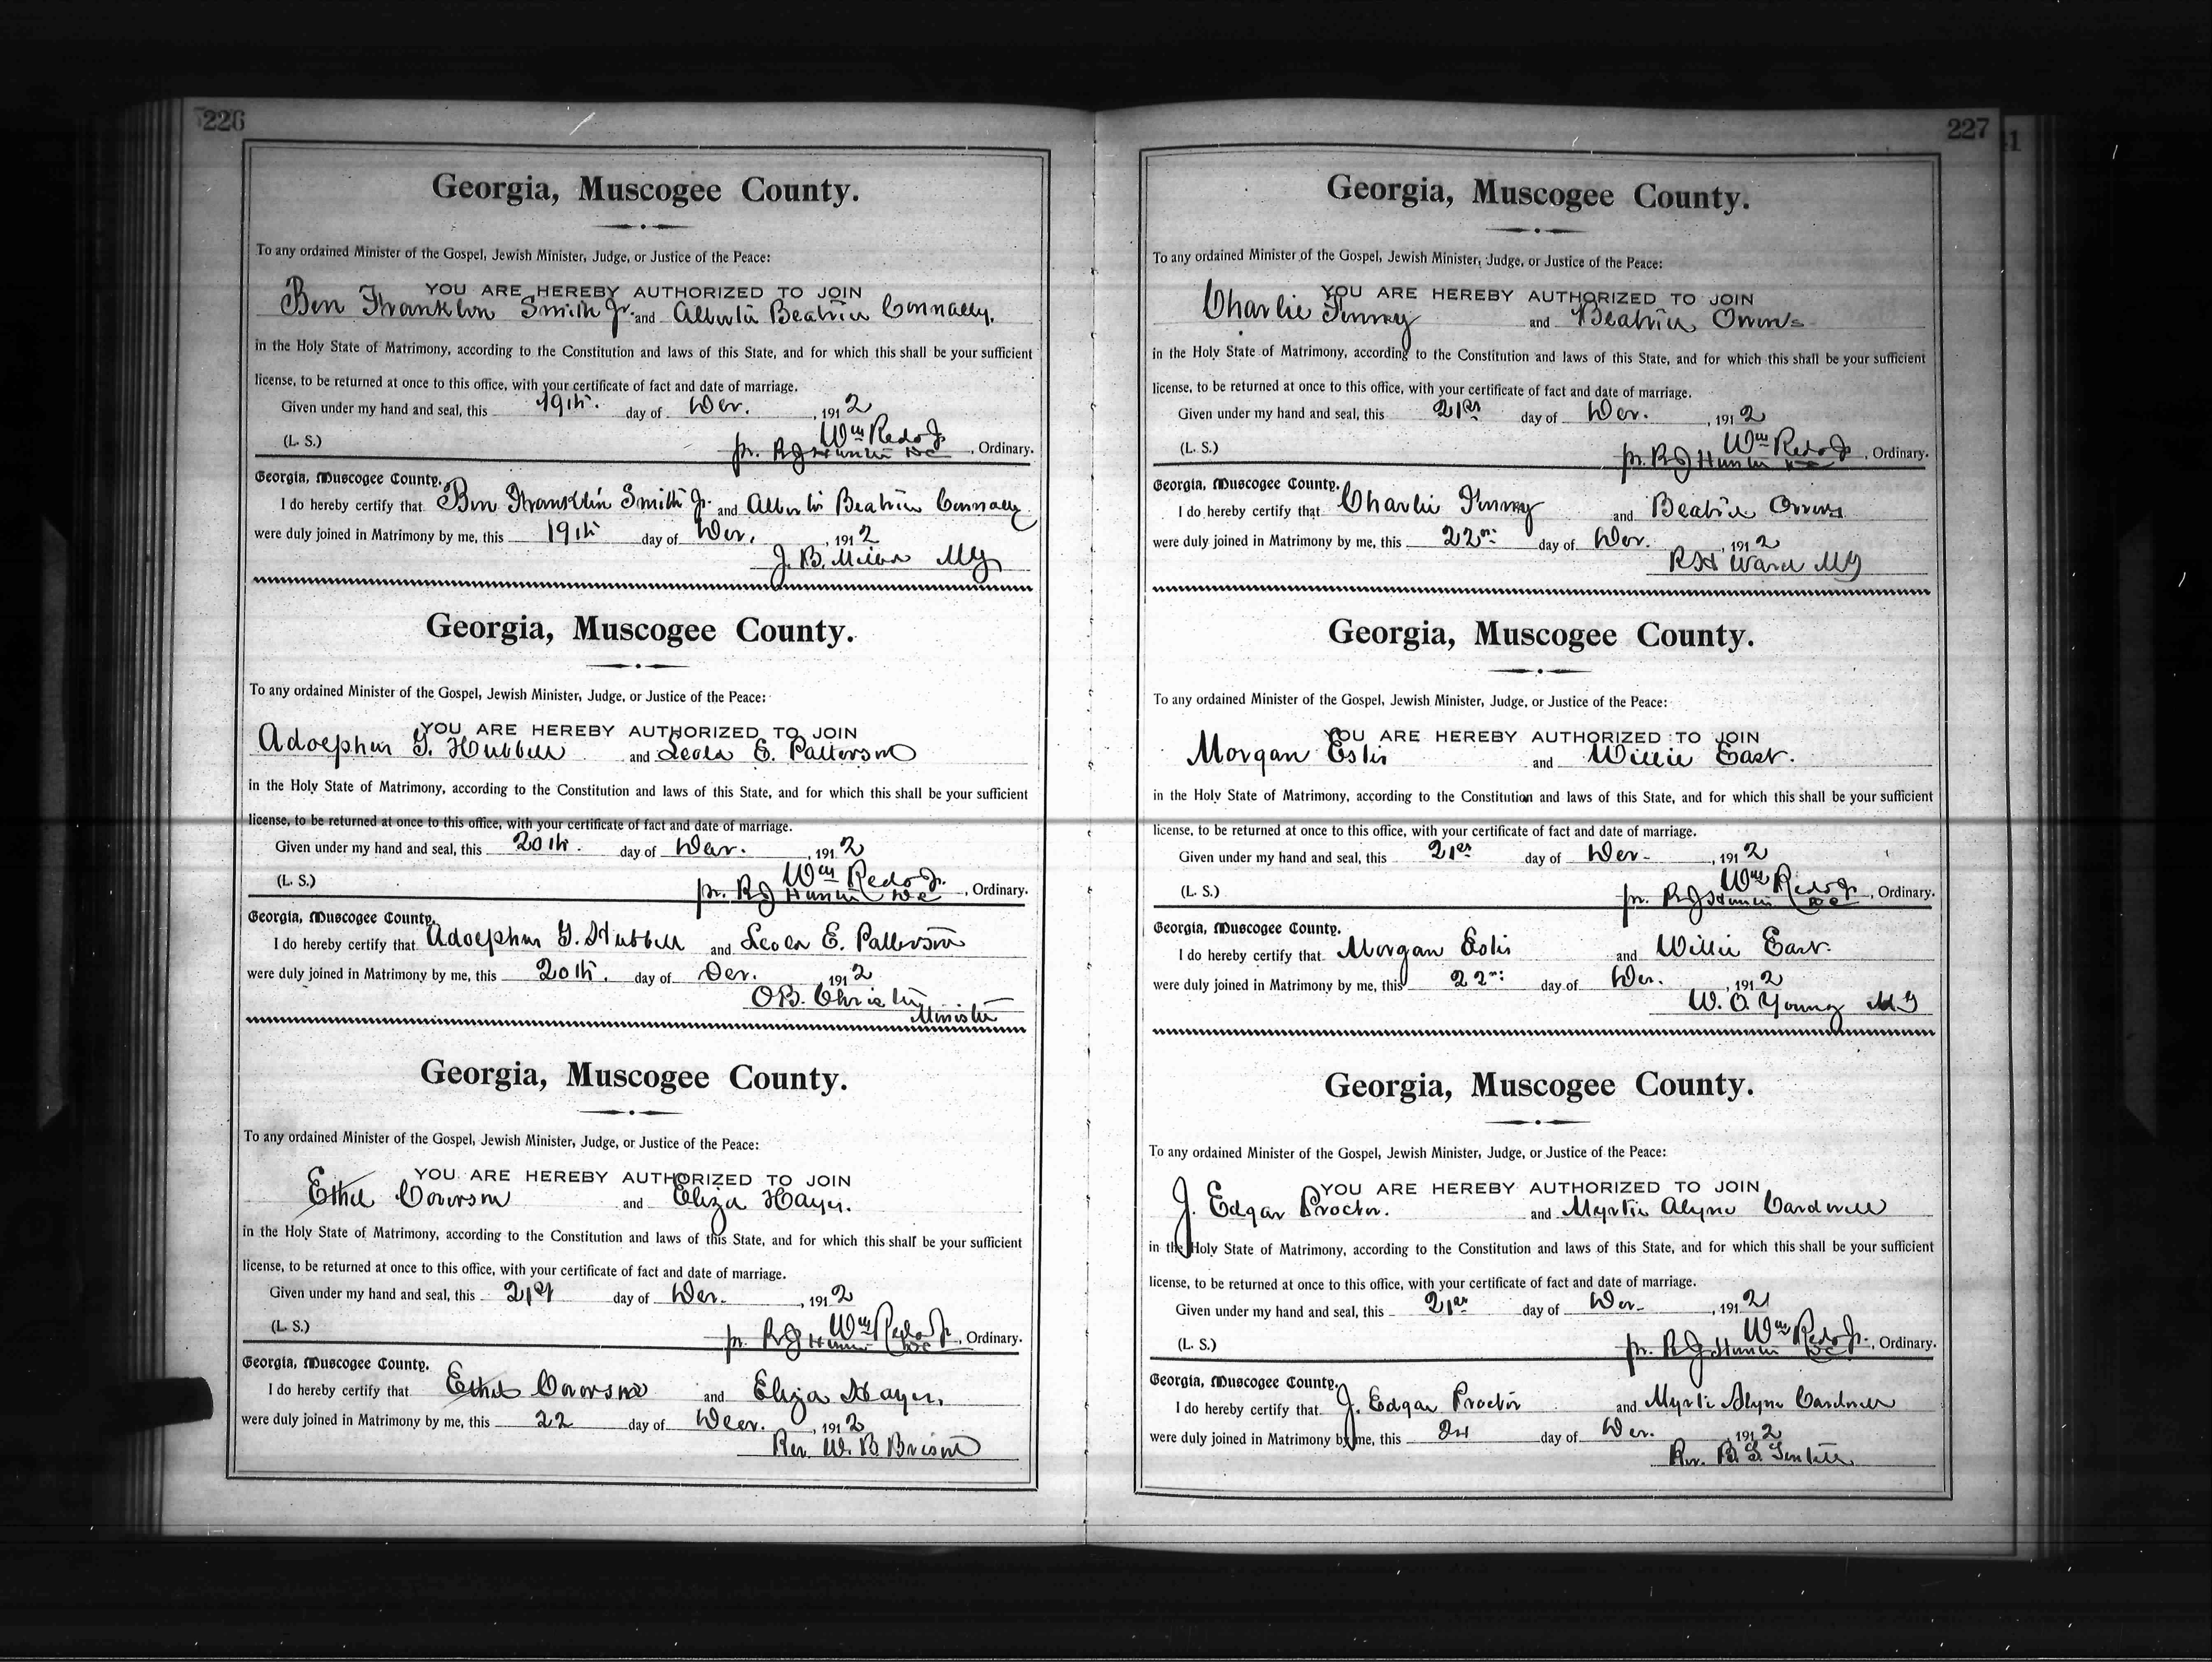 226
Georgia, Muscogee County.
To any ordained Minister of the Gospel, Jewish Minister, Judge, or Justice of the Peace:
YOU ARE HEREBY AUTHORIZED TO JOIN
Ben Franklin Smith Jr. and Alberta Beatrice Connally.
in the Holy State of Matrimony, according to the Constitution and laws of this State, and for which this shall be your sufficient
license, to be returned at once to this office, with your certificate of fact and date of marriage.
Given under my hand and seal, this 19th. day of Dec. , 1912
Wm Redd Jr
(L. S.) pr. R J Hunter DC , Ordinary.
Georgia, Muscogee County.
I do hereby certify that Ben Franklin Smith Jr. and Alberta Beatrice Connally
were duly joined in Matrimony by me, this 19th day of Dec. , 1912
J. B. MG
Georgia, Muscogee County.
To any ordained Minister of the Gospel, Jewish Minister, Judge, or Justice of the Peace:
YOU ARE HEREBY AUTHORIZED TO JOIN
Adolphus G. Hubbell and Leola E. Patterson
in the Holy State of Matrimony, according to the Constitution and laws of this State, and for which this shall be your sufficient
license, to be returned at once to this office, with your certificate of fact and date of marriage.
Given under my hand and seal, this 20th. day of Dec. , 1912
Wm Redd Jr.
(L. S.) pr. R J Hunter DC , Ordinary.
Georgia, Muscogee County.
I do hereby certify that Adolphus G. Hubbell and Leola E. Patterson
were duly joined in Matrimony by me, this 20th. day of Dec. , 1912
O B. Christie
Minister
Georgia, Muscogee County.
To any ordained Minister of the Gospel, Jewish Minister, Judge, or Justice of the Peace:
YOU ARE HEREBY AUTHORIZED TO JOIN
Ethel and Eliza Hayes.
in the Holy State of Matrimony, according to the Constitution and laws of this State, and for which this shall be your sufficient
license, to be returned at once to this office, with your certificate of fact and date of marriage.
Given under my hand and seal, this 21st day of Dec. , 1912
Wm Redd Jr
(L. S.) pr. R J Hunter DC , Ordinary.
Georgia, Muscogee County.
I do hereby certify that Ethel and Eliza Hayes.
were duly joined in Matrimony by me, this 22 day of Decr. , 1912
Rev. W. B.
227
Georgia, Muscogee County.
To any ordained Minister of the Gospel, Jewish Minister, Judge, or Justice of the Peace:
YOU ARE HEREBY AUTHORIZED TO JOIN
Charlie and Beatrice Owens
in the Holy State of Matrimony, according to the Constitution and laws of this State, and for which this shall be your sufficient
license, to be returned at once to this office, with your certificate of fact and date of marriage.
Given under my hand and seal, this 21st day of Dec. , 1912
Wm Redd Jr
(L. S.) pr. R J Hunter DC , Ordinary.
Georgia, Muscogee County.
I do hereby certify that Charlie and Beatrice Owens
were duly joined in Matrimony by me, this 22nd day of Dec. , 1912
R H Ward MG
Georgia, Muscogee County.
To any ordained Minister of the Gospel, Jewish Minister, Judge, or Justice of the Peace:
YOU ARE HEREBY AUTHORIZED TO JOIN
Morgan Estis and Willie East.
in the Holy State of Matrimony, according to the Constitution and laws of this State, and for which this shall be your sufficient
license, to be returned at once to this office, with your certificate of fact and date of marriage.
Given under my hand and seal, this 21st day of Dec. , 1912
Wm Redd Jr
(L. S.) pr. R J Hunter DC , Ordinary.
Georgia, Muscogee County.
I do hereby certify that Morgan Estis and Willie East.
were duly joined in Matrimony by me, this 22nd day of Dec. , 1912
W. O. Young M G
Georgia, Muscogee County.
To any ordained Minister of the Gospel, Jewish Minister, Judge, or Justice of the Peace:
YOU ARE HEREBY AUTHORIZED TO JOIN
J. Edgar Proctor. and Myrtie Alyne Cardwell
in the Holy State of Matrimony, according to the Constitution and laws of this State, and for which this shall be your sufficient
license, to be returned at once to this office, with your certificate of fact and date of marriage.
Given under my hand and seal, this 21st day of Dec. , 1912
Wm Redd Jr.
(L. S.) pr. R J Hunter DC , Ordinary.
Georgia, Muscogee County.
I do hereby certify that J. Edgar Proctor and Myrtie Alyne Cardwell
were duly joined in Matrimony by me, this 24 day of Dec. , 1912
Rev. B. S.